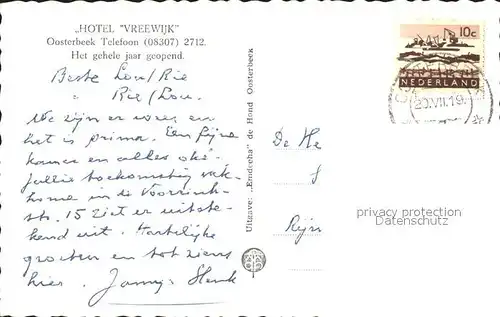 „HOTEL "VREEWIJK"
Oosterbeek Telefoon (08307) 2712.
Het gehele jaar geopend.
Beste Lou/Rie
" Rie/Lou.
We zijn er weer en
het is prima. Een fijne
kamer en alles oké.
Jullie toekomstig
home in de
str. 15 ziet er uitste-
kend uit. Hartelijke
groeten en tot ziens
hier. Janny Henk
Uitgave: „Emdeeha" de Hond Oosterbeek
10c
NEDERLAND
20.VII.19
De He
Rijn
privacy protection
Datenschutz